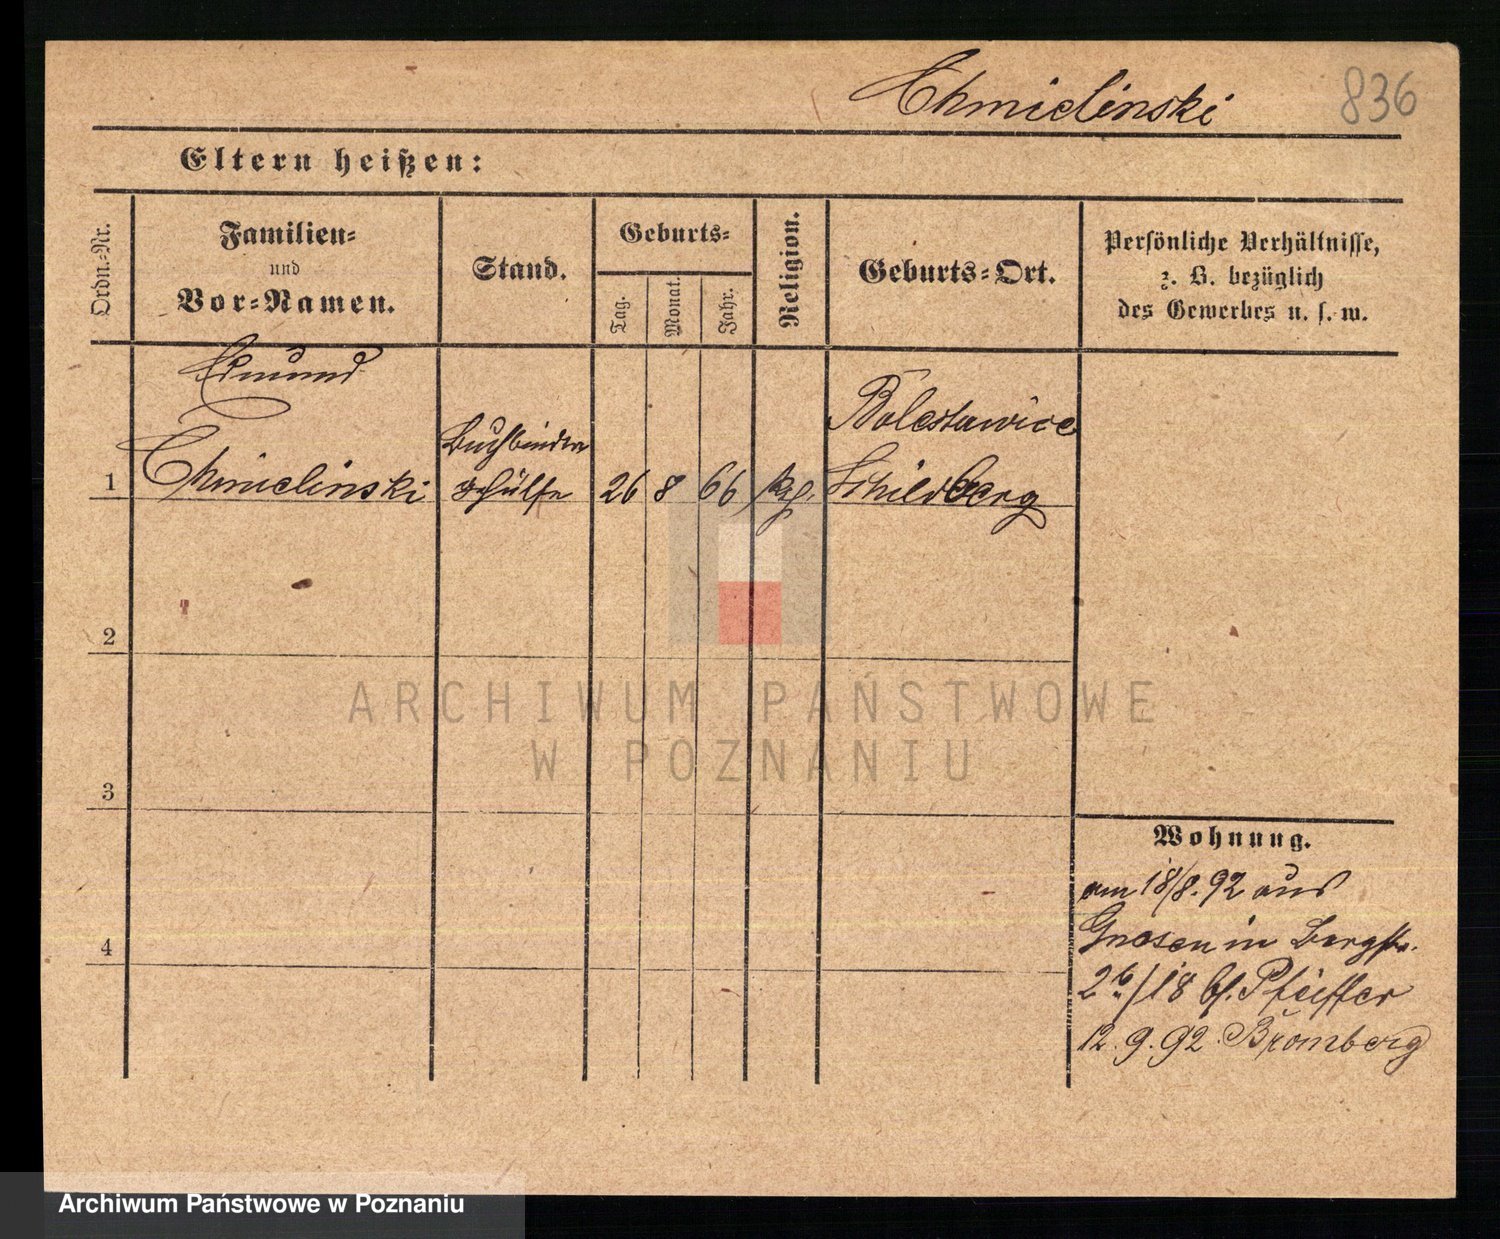 Chmielinski 836
Eltern heißen:
Ordn.-Nr.
Familien-
und
Vor-Namen.
Stand.
Geburts-
Tag.
Monat.
Jahr.
Religion.
Geburts-Ort.
Persönliche Verhältnisse,
z. B. bezüglich
des Gewerbes u. s. w.
Edmund
Chmielinski
Buchbinder
gehülfe
26 8 66
Boleslawice
Schildberg
1
2
3
4
Wohnung.
am 18/8.92 aus
Gnesen in Bergstr.
2b/18 bei Pfeiffer
12.9.92 Bromberg
ARCHIWUM PAŃSTWOWE
W POZNANIU
Archiwum Państwowe w Poznaniu